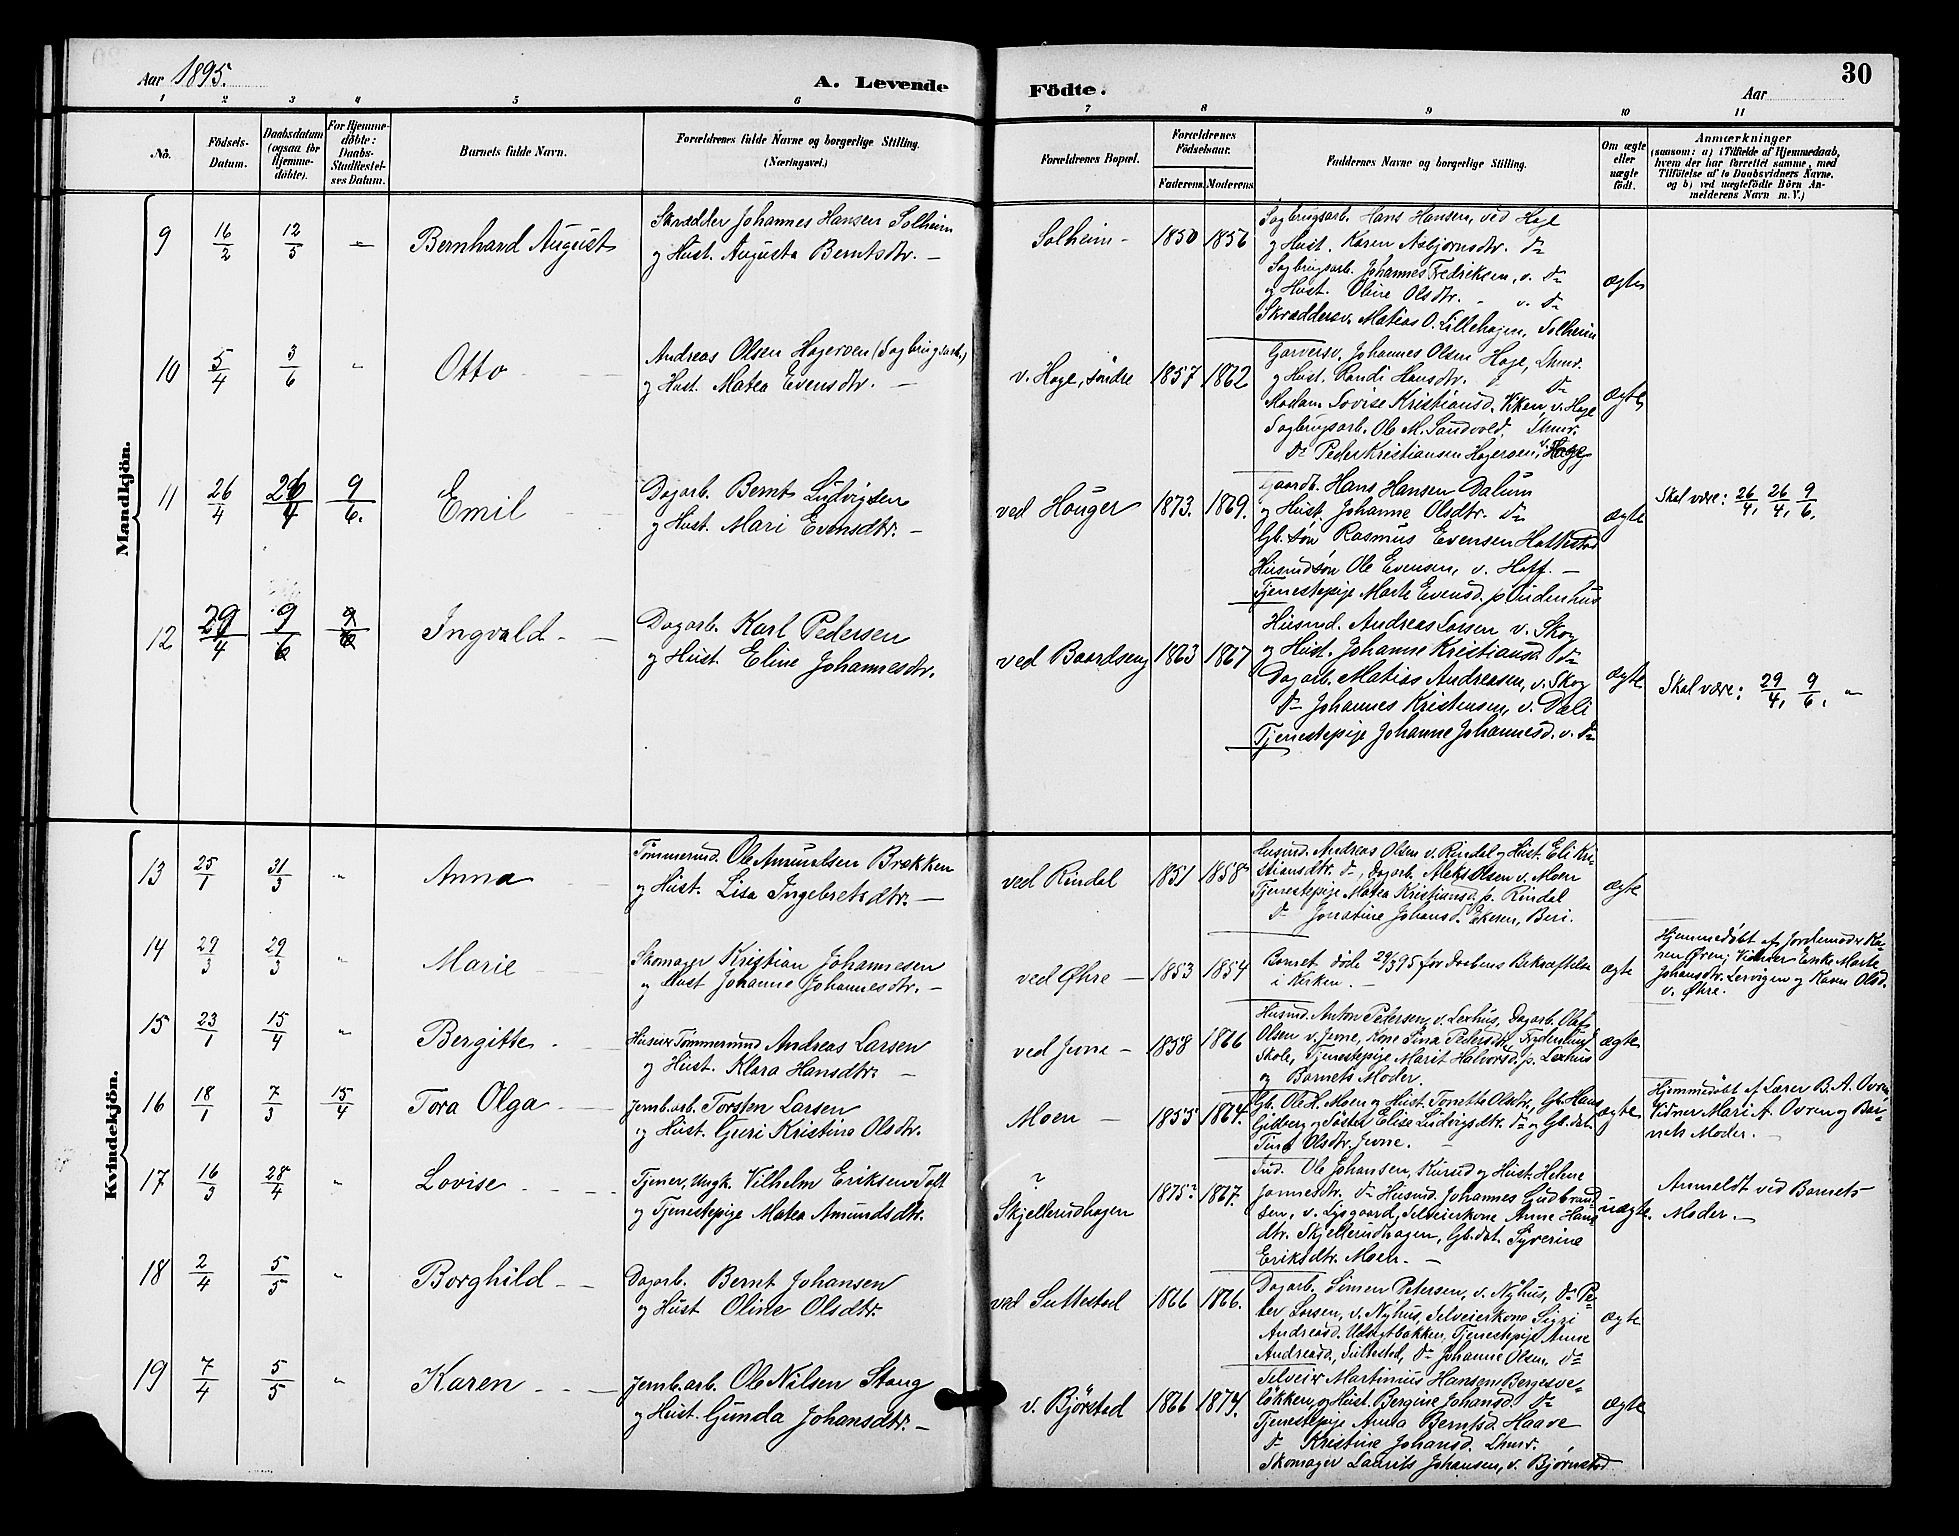 Aar 1895.
A. Levende Födte.
Aar
30
1 2 3 4 5 6 7 8 9 10 11
No.
Födsels-Datum.
Daabsdatum (ogsaa for Hjemme-döbte).
For Hjemme-döbte: Daabs-Stadfæstel-ses Datum.
Barnets fulde Navn.
Forældrenes fulde Navne og borgerlige Stilling. (Næringsvei.)
Forældrenes Bopæl.
Forældrenes Födselsaar.
Faderens
Moderens
Faddernes Navne og borgerlige Stilling.
Om ægte eller uægte födt.
Anmærkninger
(saasom: a) i Tilfælde af Hjemmedaab,
hvem der har forrettet samme, med
Tilföielse af to Daabsvidners Navne.
og b) ved uægtefödte Börn An-
melderens Navn m. V.)
Mandkjön.
9 16/2 12/5 — Bernhard August
Skrædder Johannes Hansen Solheim
og Hust. Augusta Berntsdtr. —
Solheim — 1850 1856
Sagbrugsarb. Hans Hansen, ved Hage
og Hust. Karen Asbjørnsdtr. do
Sagbrugsarb. Johannes Fredriksen, v. do
og Hust. Oline Olsdtr. - v. do
Skræddersv. Matias O. Lillehagen, Solheim
ægte
10 5/4 3/6 " Otto
Andreas Olsen Hageroen (Sagbrugsarb.)
og Hust. Matea Evensdtr. —
v. Hage, søndre 1857 1862
Garversv. Johannes Olsen Hage, Lhmr.
og Hust. Randi Hansdtr. " do
Madam Lovise Kristiansd. Viken, v. Hage
Sagbrugsarb. Ole M. Sandvold, Lhmr.
do Peder Kristiansen Hageroen, v. Hage
ægte
11 26/4 26/4 9/6. Emil
Dagarb. Bernt Ludvigsen
og Hust. Mari Evensdtr. —
ved Houger 1873. 1869.
Gaardb. Hans Hansen Dalum
og Hust. Johanne Olsdtr. do
Gb. søn Rasmus Evensen Hattestad
Husmdsøn Ole Evensen, v. Hoff. —
Tjenestepige Marte Evensd. p. Sindenhus
ægte
Skal være: 26/4, 26/4, 9/6.
12 29/4 9/6 9/6 Ingvald
Dagarb. Karl Pedersen
og Hust. Eline Johannesdtr.
ved Baardseng 1863 1867
Husmd. Andreas Larsen v. Skog
og Hust. Johanne Kristiansd. do
Dagarb. Matias Andreasen, v. Skog
do Johannes Kristensen, v. Dæli
Tjenestepige Johanne Johannesd. v. do
ægte
Skal være: 29/4, 9/6, "
Kvindekjön.
13 25/1 31/3 " Anna
Tømmermd. Ole Amundsen Brækken
og Hust. Lisa Ingebretsdtr. —
ved Rindal 1851 1858
Husmd. Andreas Olsen v. Rindal og Hust. Eli Kri-
stiansdtr. do, Dagarb. Aleks Olsen v. Moen
Tjenestepige Matea Kristiansd. p. Rindal
do Jonatine Johansd. Ekeren, Beri.
ægte
14 29/3 29/3 " Marie
Skomager Kristian Johannesen
og Hust Johanne Johannesdtr. —
ved Øhre — 1853 1854
Barnet døde 29/3 95 før Daabens Bekræftelse
i Kirken. —
ægte
Hjemmedøbt af Jordemoder Ka-
ren Øren; Vidner Enke Marte
Johansdtr. Lervigen og Karen Olsd.
v. Øhre.
15 23/1 15/4 " Bergitte
Huseier Tømmermd Andreas Larsen
og Hust. Klara Hansdtr. —
ved Jevne — 1858 1866
Husmd. Anton Pedersen, v. Loxhus, Dagarb. Olaf
Olsen v. Jevne, Kone Lina Pedersdtr. Frydenlund
Skole, Tjenestepige Marit Halvorsd. p. Loxhus
og Barnets Moder.
ægte
16 18/1 7/3 15/4 Tora Olga
Jernb.arb. Torsten Larsen
og Hust. Guri Kristine Olsdtr.
Moen — 1855 1864.
Gb. Ole H. Moen og Hust. Tonette Olsdtr., Gb. Hans
Gilberg og Søster Elise Ludvigsdtr. do og Gb. dat.
Tina Olsdtr. Jevne.
ægte
Hjemmedøbt af Lærer B. A. Ovren
Vidner Mari A. Ovren og Bar-
nets Moder. —
17 16/3 28/4 " Lovise
Tjener, Ungk. Vilhelm Eriksen Toft
og Tjenestepige Matea Amundsdtr.
?
Skjellerudhagen 1875? 1867.
Ind. Ole Johansen, Kurud og Hust. Helene
Jonnesdtr. do Husmd. Johannes Gudbrand-
sen, v. Lysgaard, Selveierkone Anne Hans
dtr. Skjellerudhagen, Gb. dat. Syverine
Eriksdtr. Moen. —
uægte.
Anmeldt ved Barnets
Moder. —
18 2/4 5/5 " Borghild
Dagarb. Bernt Johansen
og Hust Oline Olsdtr.
ved Suttestad 1866 1866.
Dagarb. Simen Petersen, v. Nyhus, do Pe-
ter Larsen, v. Nyhus, Selveierkone Sigri
Andreasd. Udsigtbakken, Tjenestepige Anne
Andreasd., Suttestad, do Johanne Olsen, do
ægte
19 7/4 5/5 " Karen
Jernb.arb. Ole Nilsen Stang
og Hust. Gunda Johansdtr. —
v. Bjørstad 1866 1874.
Selveier Martinius Hansen Bergesve-
løkken, og Hust. Bergine Johansd. do
Tjenestepige Anna Berntsd. Haave
do Kristine Johansd. Lhmr.
Skomager Laurits Johansen, v. Bjørnstad
ægte